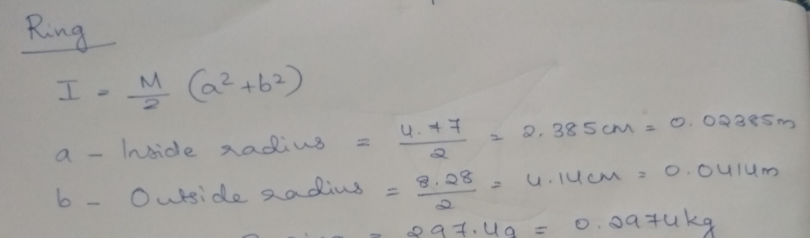 Ring
I = M/2 (a² + b²)
a - Inside radius = 4.77/2 = 2.385cm = 0.02385m
b - Outside radius = 8.28/2 = 4.14cm = 0.0414m
= 297.4g = 0.2974kg